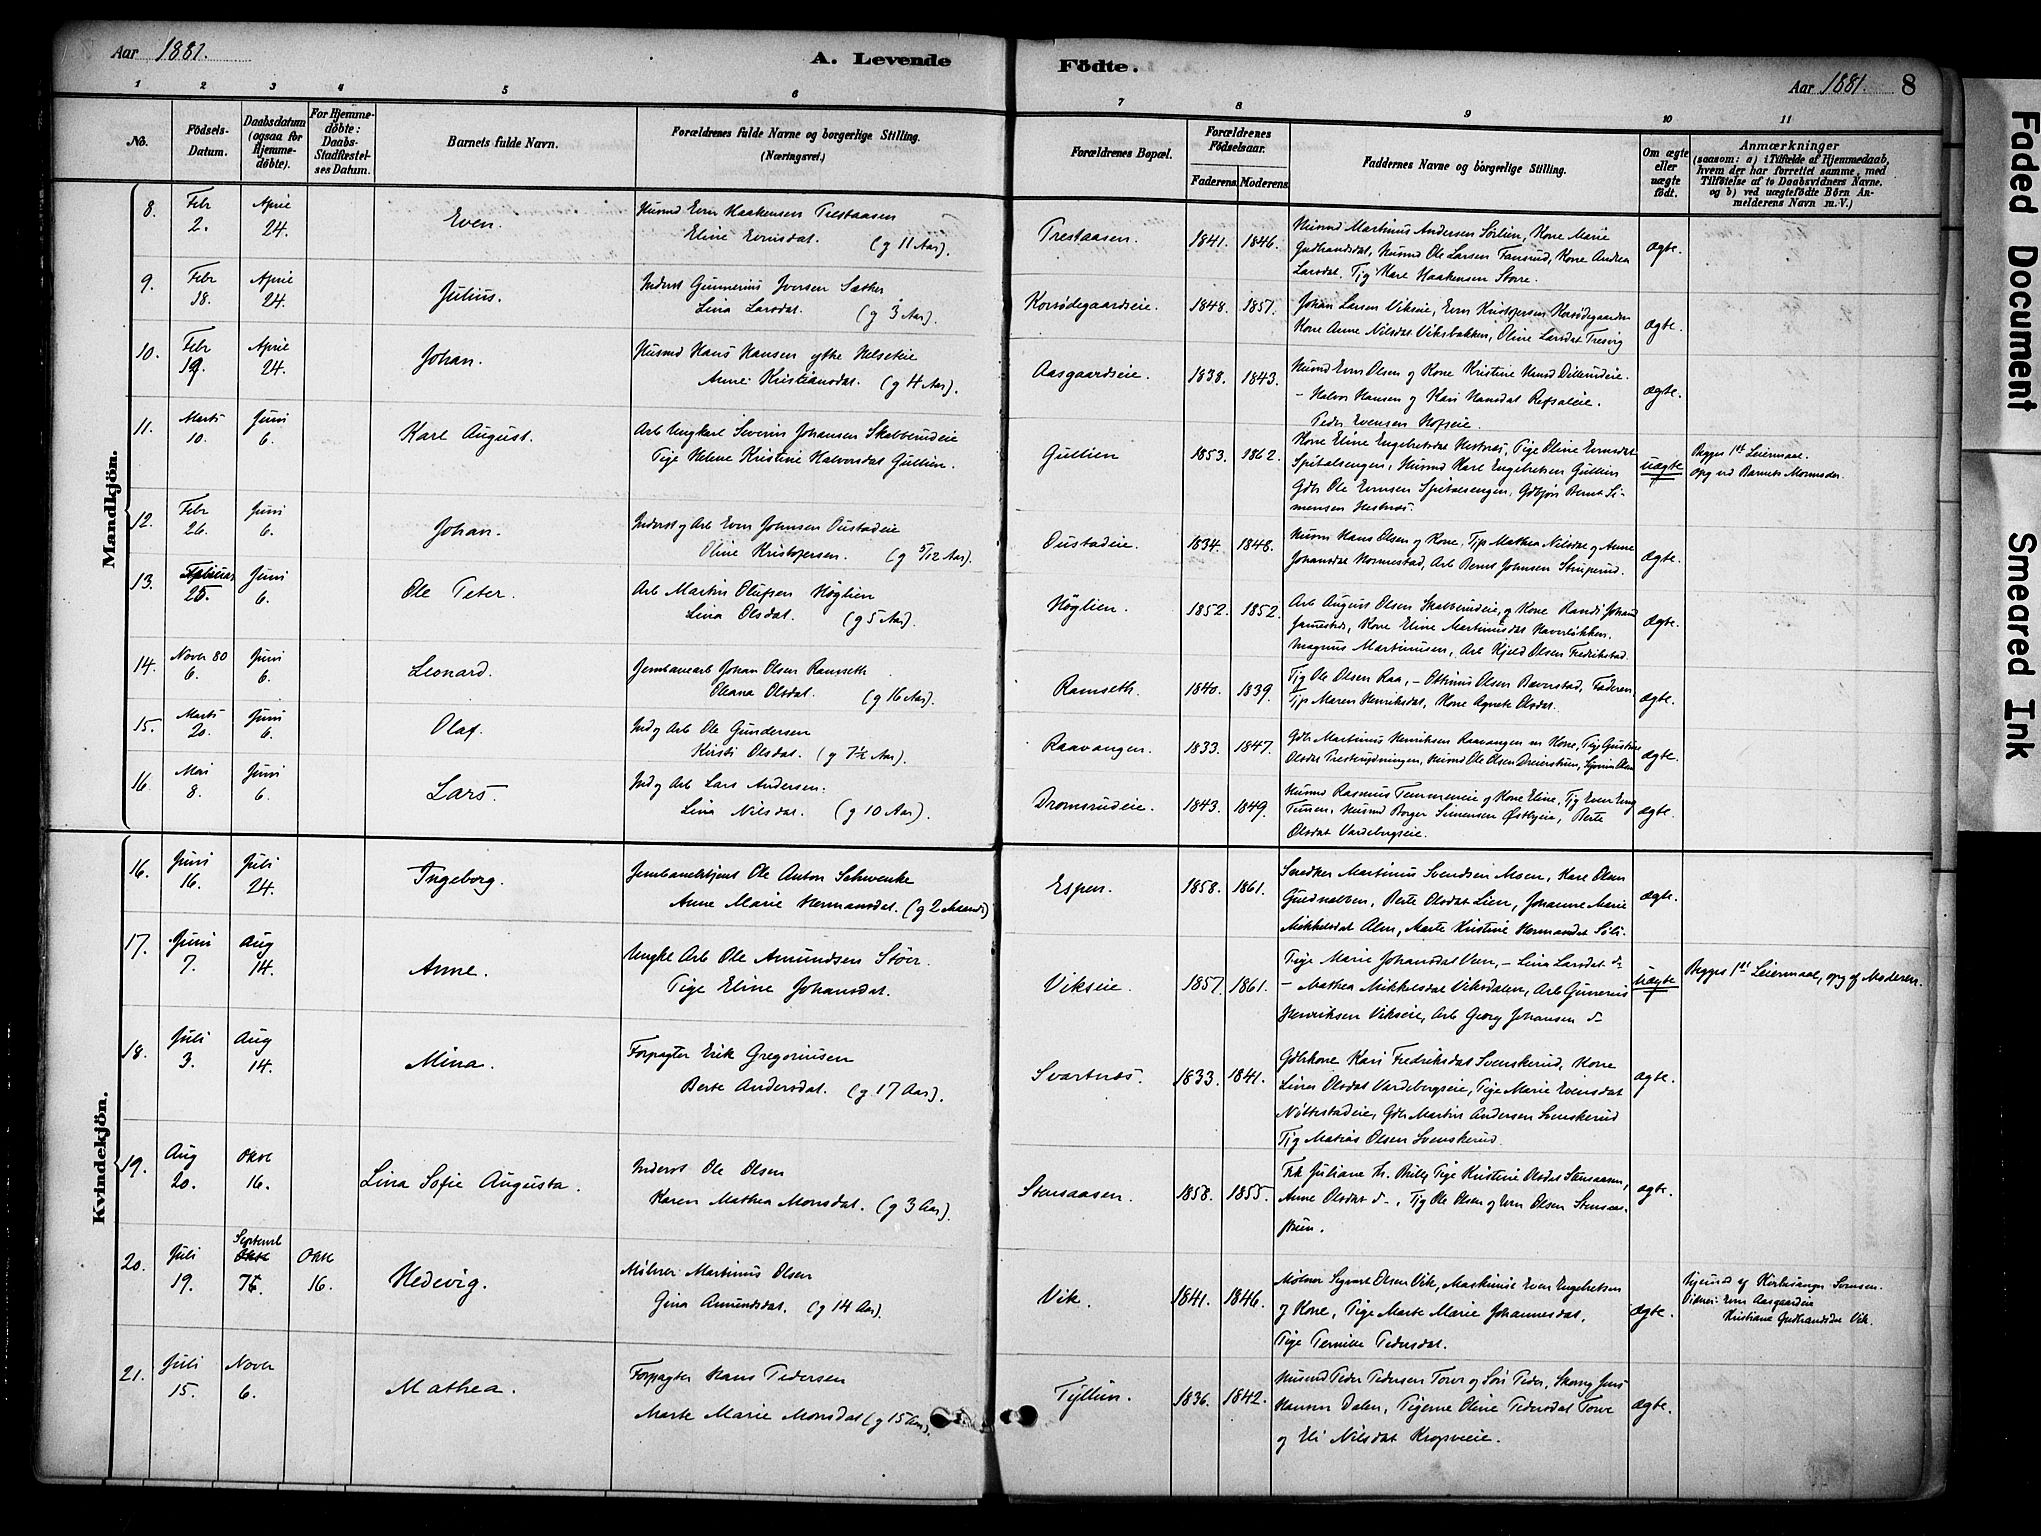 Aar 1881.
A. Levende Födte.
Aar 1881. 8
1 2 3 4 5 6 7 8 9 10 11
No.
Födsels-Datum.
Daabsdatum (ogsaa for Hjemme-döbte).
For Hjemme-döbte: Daabs-Stadfæstel-ses Datum.
Barnets fulde Navn.
Forældrenes fulde Navne og borgerlige Stilling.
(Næringsvei.)
Forældrenes Bopæl.
Forældrenes Födselsaar.
Faderens. Moderens.
Faddernes Navne og borgerlige Stilling.
Om ægte eller uægte födt.
Anmærkninger
(saasom: a) i Tilfælde af Hjemmedaab, hvem der har forrettet samme, med Tilföielse af to Daabsvidners Navne, og b) ved uægtefödte Börn An-melderens Navn m. V.)
Mandkjön.
8. Febr 2. April 24. Even.
Husmd Even Haakensen Trestaasen
Eline Evensdat. (g 11 Aar).
Trestaasen. 1841. 1846.
Husmd Martinus Andersen Sørlien, Kone Marie
Gudbrandsdat, Husmd Ole Larsen Fansrud, Kone Andrea
Larsdat, Tjg Karl Haakensen Storre.
ægte.
9. Febr 18. April 24. Julius.
Inderst Gunnerius Iversen Sæther
Lina Larsdat. (g 3 Aar).
Korsødegaardseie. 1848. 1857.
Johan Larsen Vikseie, Even Kristofersen Korsødegaarden
Kone Anne Nilsdat Viksbakken, Oline Larsdat Tresvig
ægte.
10. Febr 19. April 24. Johan.
Husmd Hans Hansen Helseteie
Anne Kristiansdat. (g 4 Aar).
Aasgaardseie. 1838. 1843.
Husmd Even Olsen og Kone Kristine
– Halvor Hansen og Kari Hansdat Refsaleie.
Peder Evensen Hofseie.
ægte.
11. Marts 10. Juni 6. Karl August.
Arb Ungkarl Severin Johansen Skabberudeie
Pige Helene Kristine Halvorsdat Gullien.
Gullien 1853. 1862.
Kone Eline Engebretsdat Hestnæs, Pige Oline Evensdat
Spitalsengen, Husmd Karl Engebretsen Gullien
Gdbr Ole Evensen Spitalsengen, Gdbsøn Bernt Si-
mensen Hestnæs.
uægte
Begges 1st Leiermaal.
opg ved Barnets Mormoder.
12. Febr 26. Juni 6. Johan.
Inderst og Arb Even Johnsen Oustadeie
Oline Kristofersen. (g 5/12 Aar).
Oustadeie. 1834. 1848.
Husm Hans Olsen og Kone, Pige Mathea Nilsdat og Anne
Johansdat Hormestad, Arb Bernt Johnsen Struperud.
ægte.
13. 25. Juni 6. Ole Peter.
Arb Martin Olufsen Høglien
Lina Olsdat. (g 5 Aar).
Høglien. 1852. 1852.
Arb August Olsen Skabberudeie, og Kone Randi
Kone Eline Martinusdat Haverløkken.
Magnus Martinusen, Arb Kjeld Olsen Fredrikstad.
ægte.
14. Novbr 80 6. Juni 6. Leonard.
Jernbanearb Johan Olsen Ramseth
Oleana Olsdat. (g 16 Aar).
Ramseth. 1840. 1839.
Tjg Ole Olsen Raa, – Ottinius Olsen Baverstad, Faderen,
Pige Maren Henriksdat, Kone Agnete Olsdat.
ægte.
15. Marts 20. Juni 6. Olaf.
Ind og Arb Ole Gundersen
Kirsti Olsdat. (g 7½ Aar).
Raavangen. 1833. 1847.
Gdbr Martinus Henriksen Raavangen m Kone, Pige Gustine
Olsdat Trestrydningen, Husmd Ole Olsen
ægte.
16. Mai 8. Juni 6. Lars.
Ind og Arb Lars Andersen.
Lina Nilsdat. (g 10 Aar).
Dromsrudeie. 1843. 1849.
Husmd Rasmus og Kone Eline, Tjg Even
Husmd Borger Simensen Østbyeie, Berte
Olsdat Vardebergseie.
ægte.
Kvindekjön.
16. Juni 16. Juli 24. Ingeborg.
Jernbanebetjent Ole Anton Schwenke
Anne Marie Hermansdat. (g 2 Maand)
Espen. 1858. 1861.
Snedker Martinus Svendsen Moen, Kari Olsen
Berte Olsdat Lien, Johanne Marie
Mikkelsdat Alm, Marte Kristine Hermansdat Søli.
ægte.
17. Juni 7. Aug 14. Anne.
Ungk Arb Ole Amundsen Støer
Pige Eline Johansdat.
Vikseie. 1857. 1861.
Pige Marie Johansdat Veen, – Lina Larsdat do
– Mathea Mikkelsdat Viksdalen, Arb Gunerius
Henriksen Vikseie, Arb Georg Johansen do
uægte
Begges 1st Leiermaal, opg af Moderen.
18. Juli 3. Aug 14. Mina.
Forpagter Erik Gregoriusen
Berte Andersdat. (g 17 Aar).
Svartnæs. 1833. 1841.
Gdbrkone Kari Fredriksdat Svenskerud, Kone
Lina Olsdat Vardebergseie, Pige Marie Evensdat
Nøttestadeie, Gdb Martin Andersen Svenskerud
Tjg Matias Olsen Svenskerud.
ægte.
19. Aug 20. Oktb 16. Lina Sofie Augusta.
Inderst Ole Olsen
Karen Mathea Monsdat. (g 3 Aar).
Stensaasen. 1858. 1855.
Frk Juliane Th. Pige Kristine Olsdat Stensaasen,
Anne Olsdat do, Tjg Ole Olsen og Even Olsen Stensaas-
ægte.
20. Juli 19. Septembr Oktb 16. Hedevig.
Møller Martinus Olsen
Gina Amundsdat. (g 14 Aar).
Vik. 1841. 1846.
Møller Sigvart Olsen Vik, Maskinist Even Engebretsen
og Kone, Pige Marte Marie Johannesdat.
Pige Pernille Pedersdat.
ægte.
Hjemd af Kirkesanger Sørensen.
Vidner: Even Aasgaardeie
Kristiane Gudbrandsdat Vik.
21. Juli 15. Novbr 6. Mathea.
Forpagter Hans Pedersen
Marte Marie Monsdat (g 15 Aar).
Tyllien. 1836. 1842.
Husmd Peder Pedersen Torve og Søn Peder,
Hansen Dalen, Pigerne Oline Pedersdat Torve
og Eli Nilsdat Kropseie.
ægte.
Faded Document Smeared Ink